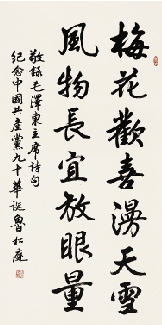 梅花歡喜漫天雪
風物長宜放眼量
敬録毛澤東主席詩句
紀念中國共產黨九十華誕魯松庭